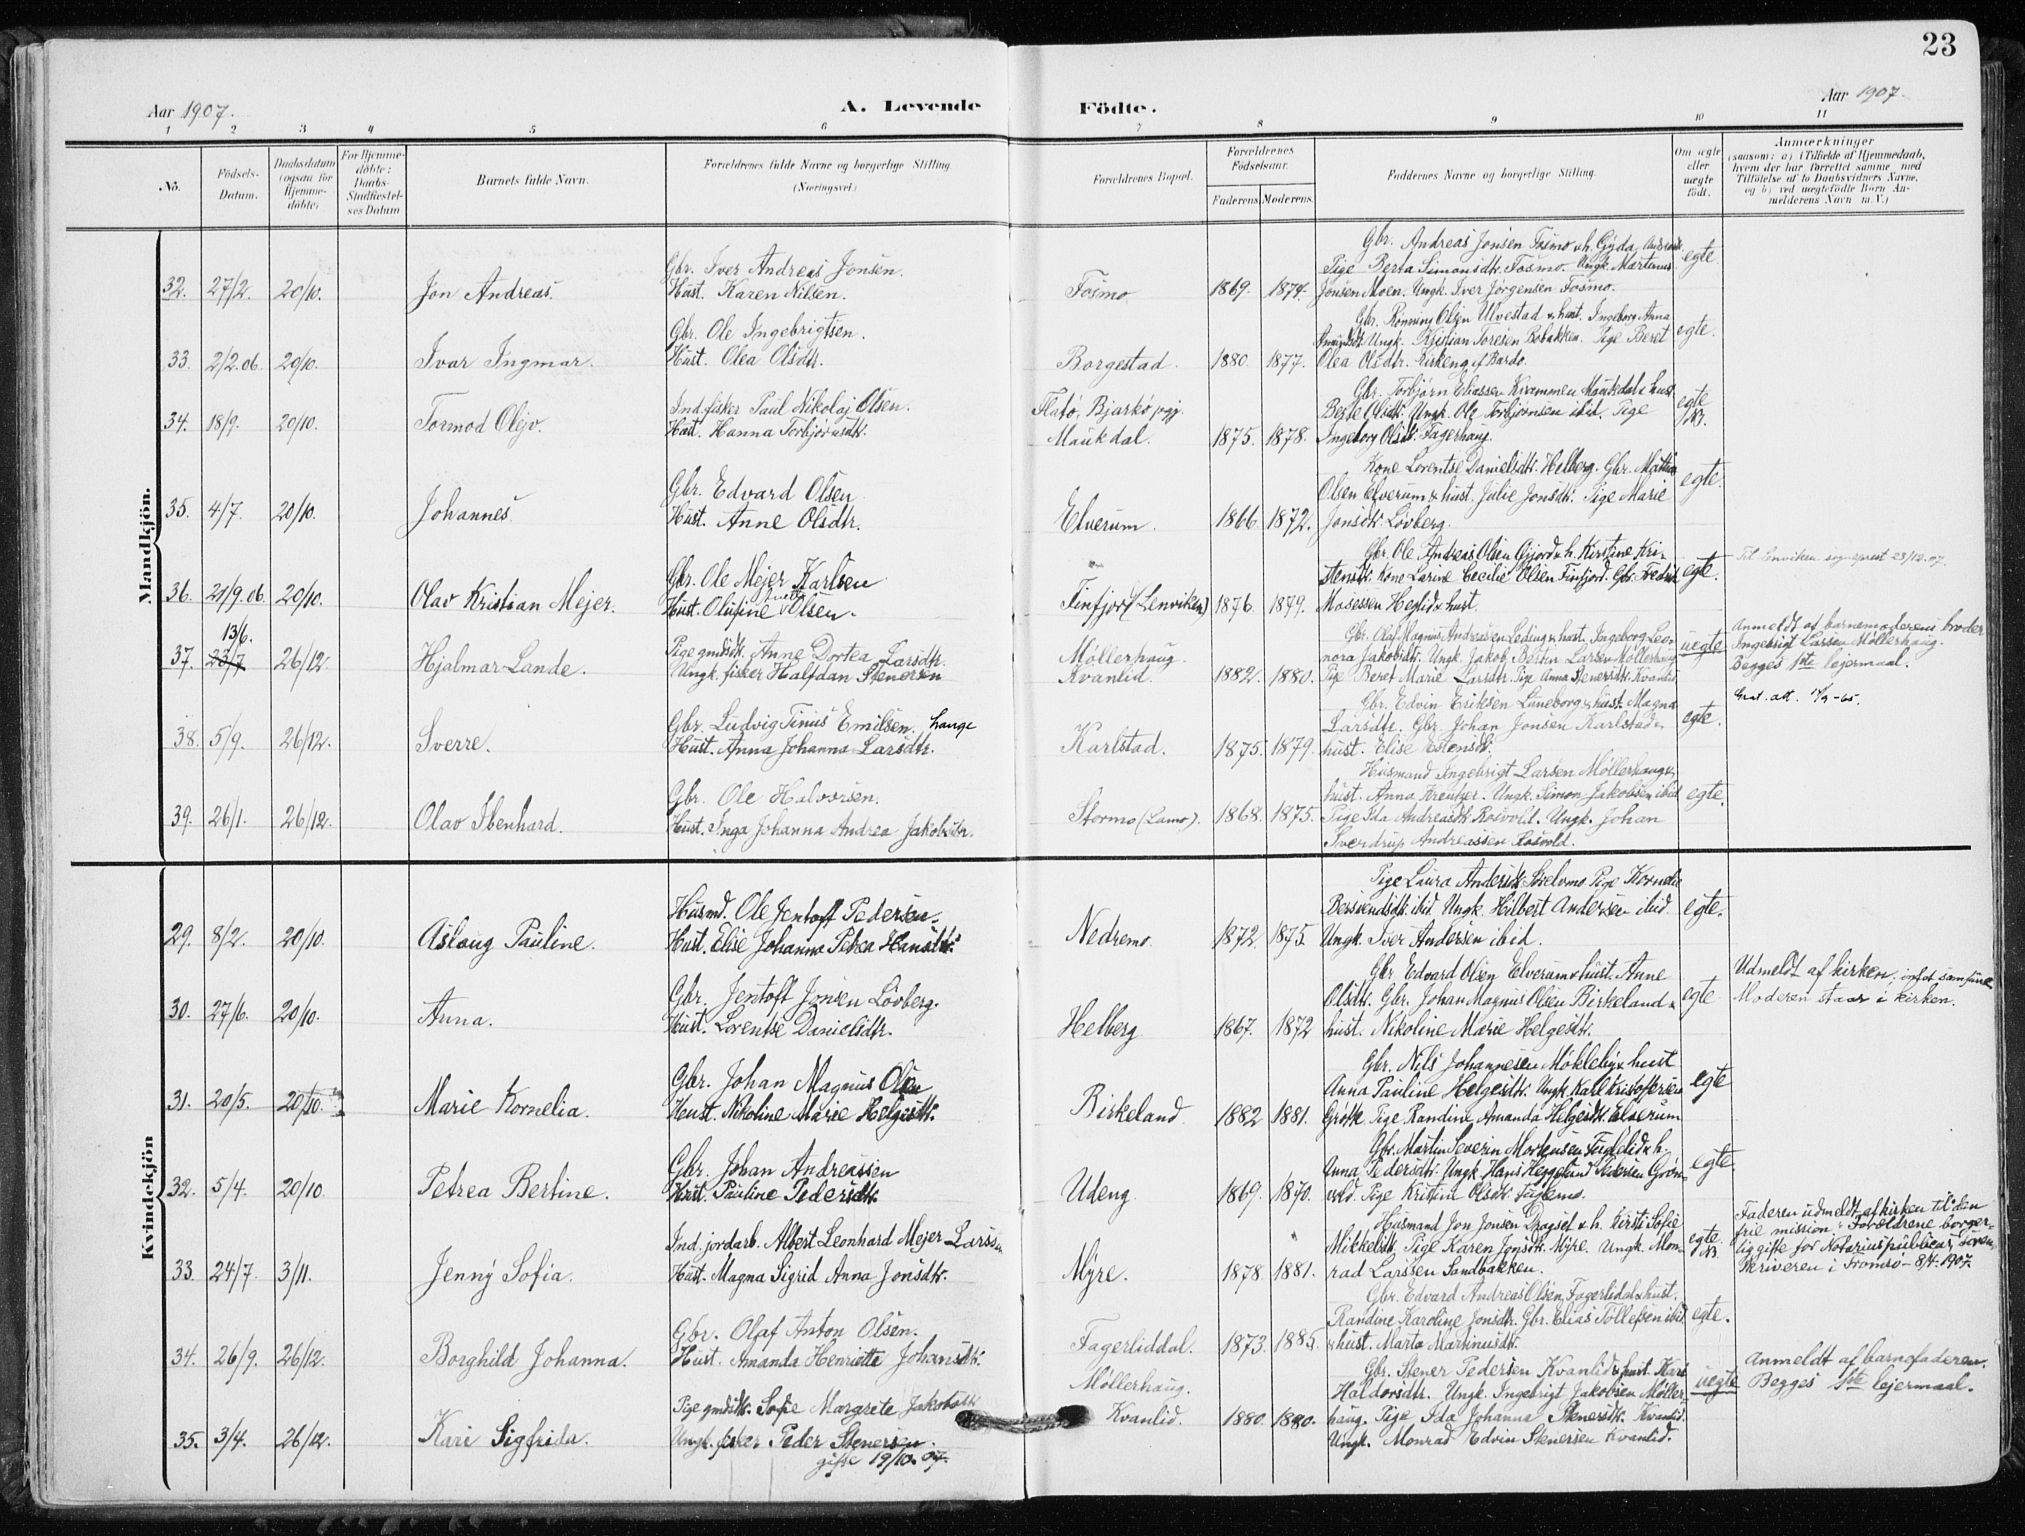 23
Aar 1907.
A. Levende
Födte.
Aar 1907.
1 2 3 4 5 6 7 8 9 10 11
No.
Födsels-
Datum.
Daabsdatum
(ogsaa for
Hjemme-
döbte)
For Hjemme-
döbte:
Daabs-
Stadfæstel-
ses Datum
Barnets fulde Navn.
Forældrenes fulde Navne og borgerlige Stilling
(Næringsvei.)
Forældrenes Bopæl.
Forældrenes
Födselsaar.
Faderens Moderens.
Faddernes Navne og borgerlige Stilling.
Om ægte
eller
uægte
födt.
Anmærkninger
(saasom: a) i Tilfælde af Hjemmedaab,
hvem der har forrettet samme med
Tilföielse af to Daabsvidners Navne,
og b) ved uægtefödte Börn An-
melderens Navn m. V.)
Mandkjön.
32. 27/2. 20/10. Jon Andreas.
Gbr. Iver Andreas Jonsen.
Hust. Karen Nilsen.
Fosmo 1869. 1874.
Gbr. Andreas Jonsen Fosmo & h. Gyda
Pige Berta Simonsdtr. Fosmo. Ungk. Martinus
Jonsen Moen. Ungk. Iver Jørgensen Fosmo.
egte.
33. 2/2.06. 20/10. Ivar Ingmar.
Gbr. Ole Ingebrigtsen.
Hust. Olea Olsdtr.
Borgestad. 1880. 1877.
Gbr. Rønning Olsen Ulvestad & hust. Ingeborg Anna
Ungk. Kristian Toresen Bobakken. Pige Beret
Olea Olsdtr. Kirkeng af Bardo.
egte.
34. 18/9. 20/10. Tormod Olejv.
Ind. fisker Paul Nikolaj Olsen.
Hust. Hanna Torbjørnsdtr.
Flatø, Bjarkø pgj.
Maukdal. 1875. 1878.
Gbr. Torbjørn Eliassen Kvammen Maukdal & hust.
Berte Olsdtr. Ungk. Ole Torbjørnsen ibid. Pige
Ingeborg Olsdtr. Fagerhaug.
egte
NB.
35. 4/7. 20/10. Johannes.
Gbr. Edvard Olsen
Hust. Anne Olsdtr.
Elverum. 1866. 1872.
Kone Lorentse Danielsdtr. Helberg. Gbr. Mathias
Olsen Elverum & hust. Julie Jonsdtr. Pige Marie
Jonsdtr. Løvberg.
egte.
36. 21/9.06. 20/10. Olav Kristian Mejer.
Gbr. Ole Mejer Karlsen
Hust. Olufine Olsen.
Finfjord (Lenviken) 1876. 1879.
Gbr. Ole Andreas Olsen Gjord & h. Kirstine Kri-
stensdtr. Kone Larine Cecilie Olsen Finfjord. Gbr. Fredrik
Mosessen Heglid & hust.
egte.
Til Lenviken sogneprest 23/12.07.
37. 13/6. 23/7 26/12. Hjalmar Lande.
Pige gmdsdtr. Anne Dortea Larsdtr.
Ungk. fisker Halfdan Stenersen
Møllerhaug.
Kvanlid. 1882. 1880.
Gbr. Olaf Magnus Andreasen Leding & hust. Ingeborg Leo-
nora Jakobsdtr. Ungk. Jakob Bertin Larsen Møllerhaug
Pige Beret Marie Larsdtr. Pige Anna Stenersdtr. Kvanlid
uegte
Anmeldt af barnemoderens broder
Ingebrigt Larsen Møllerhaug.
Begges 1ste lejermaal.
38. 5/9. 26/12. Sverre.
Gbr. Ludvig Tinus Emilsen. hauge
Hust. Anna Johanna Larsdtr.
Karlstad. 1875. 1879.
Gbr. Edvin Eriksen Lüneborg & hust. Magna
Larsdtr. Gbr. Johan Jonsen Karlstad &
hust. Elise Estensdtr.
egte.
39. 26/1. 26/12. Olav Ibenhard.
Gbr. Ole Halvorsen.
Hust. Inga Johanna Andrea Jakobsdtr.
Stormo (Lamo). 1868. 1875.
Husmand Ingebrigt Larsen Møllerhaug &
hust. Anna Kreutzer. Ungk. Simon Jakobsen ibid
Pige Ida Andreasdtr. Rosvold. Ungk. Johan
Sverdrup Andreassen Rosvold.
egte.
Kvindekjön
29. 8/2. 20/10. Aslaug Pauline.
Husmd. Ole Jentoff Pedersen.
Hust. Elise Johanna Petrea Hansdtr.
Nedremo. 1872. 1875.
Pige Laura Andersdtr. Pige Kornelie
ibid. Ungk. Hilbert Andersen ibid.
Ungk. Iver Andersen ibid.
egte.
30. 27/6. 20/10. Anna.
Gbr. Jentoft Jonsen Løvberg.
Hust. Lorentse Danielsdtr.
Helberg 1867. 1872
Gbr. Edvard Olsen Elverum & hust. Anne
Olsdtr. Gbr. Johan Magnus Olsen Birkeland &
hust. Nikoline Marie Helgesdtr.
egte
Udmeldt af kirken,
Moderen staar i kirken.
31. 20/5. 20/10. Marie Kornelia.
Gbr. Johan Magnus Olsen
Hust. Nikoline Marie Helgesdtr.
Birkeland 1882 1881.
Gbr. Nils Johannesen Mökleby & hust
Anna Pauline Helgesdtr. Ungk. Karl Kristoffersen
Grøtte. Pige Randine Amanda Helgesdtr. Elverum
egte
32. 5/4. 20/10. Petrea Bertine.
Gbr. Johan Andreassen
Hust. Pauline Pedersdtr.
Udeng. 1869. 1870.
Gbr. Martin Severin Mortensen Fuglelid & h.
Anna Pedersdtr. Ungk. Hans Heggelund Pedersen Grøn-
vold. Pige Kristine Olsdtr. Fuglemo.
egte.
33. 24/7. 3/11. Jenny Sofia.
Ind. jordarb. Albert Leonhard Mejer Larssen
Hust. Magna Sigrid Anna Jonsdtr.
Myre. 1878. 1881.
Husmand Jon Jonsen Dragset & h. Kirsti Sofie
Mikkelsdtr. Pige Karen Jonsdtr. Myre. Ungk. Mon-
rad Larssen Sandbakken.
egte.
NB.
Faderen udmeldt af kirken til den
frie mission. Forældrene borger-
lig gifte for Notarius publicus, soren-
skriveren i Tromsø - 8/4. 1907.
34. 26/9. 26/12. Borghild Johanna.
Gbr. Olaf Anton Olsen.
Hust. Amanda Henriette Johansdtr.
Fagerliddal. 1873. 1885.
Gbr. Edvard Andreas Olsen, Fagerlidal & hust.
Randine Karoline Jonsdtr. Gbr. Elias Tollefsen ibid
& hust. Marta Martinusdtr.
egte.
35. 3/4. 26/12. Kari Sigfrida.
Pige gmdsdtr. Sofie Margrete Jakobsdtr.
Ungk. fisker Peder Stenersen.
gifte 19/10. 07.
Møllerhaug.
Kvanlid. 1880. 1880.
Gbr. Stener Pedersen Kvanlid & hust. Kari
Haldorsdtr. Ungk. Ingebrigt Jakobsen Møller-
haug. Pige Ida Johanna Stenersdtr. Kvanlid.
Ungk. Monrad Edvin Stenersen Kvanlid.
uegte
Anmeldt af barnefaderen.
Begges 1ste lejermaal.